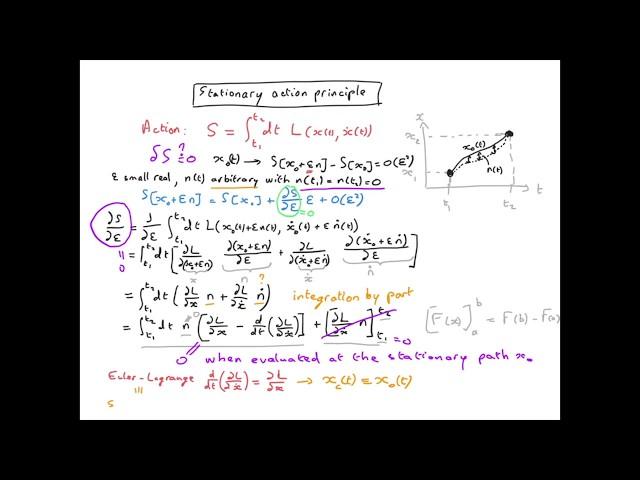 Stationary action principle
Action: S = ∫_{t₁}^{t₂} dt L(x(t), ẋ(t))
δS ?= 0 x₀(t) → S[x₀+εn] - S[x₀] = O(ε²)
ε small real, n(t) arbitrary with n(t₁) = n(t₂) = 0
S[x₀+εn] = S[x₀] + ∂S/∂ε ε + O(ε²)
=0
∂S/∂ε = ∂/∂ε ∫_{t₁}^{t₂} dt L(x₀(t)+εn(t), ẋ₀(t)+εṅ(t))
= ∫_{t₁}^{t₂} dt [ ∂L/∂(x₀+εn) ∂(x₀+εn)/∂ε + ∂L/∂(ẋ₀+εṅ) ∂(ẋ₀+εṅ)/∂ε ]
0 x n ẋ ṅ
= ∫_{t₁}^{t₂} dt ( ∂L/∂x n + ∂L/∂ẋ ṅ ) ? integration by part
= ∫_{t₁}^{t₂} dt n [ ∂L/∂x - d/dt(∂L/∂ẋ) ] + [ ∂L/∂ẋ n ]_{t₁}^{t₂} = 0
0 when evaluated at the stationary path x₀
Euler-Lagrange d/dt(∂L/∂ẋ) = ∂L/∂x → x_c(t) ≡ x₀(t)
S
x
x₂
x₁
x₀(t)
n(t)
t₁ t₂ t
[F(x)]_a^b = F(b) - F(a)